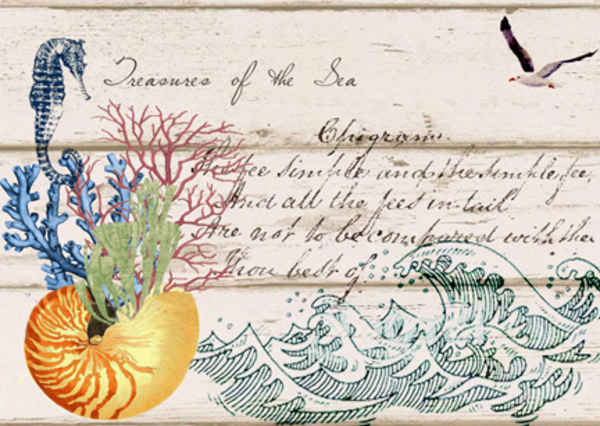 Treasures of the Sea
Epigram.
The fee simple and the simple fee,
And all the fees in tail
Are not to be compared with thee
Thou best of